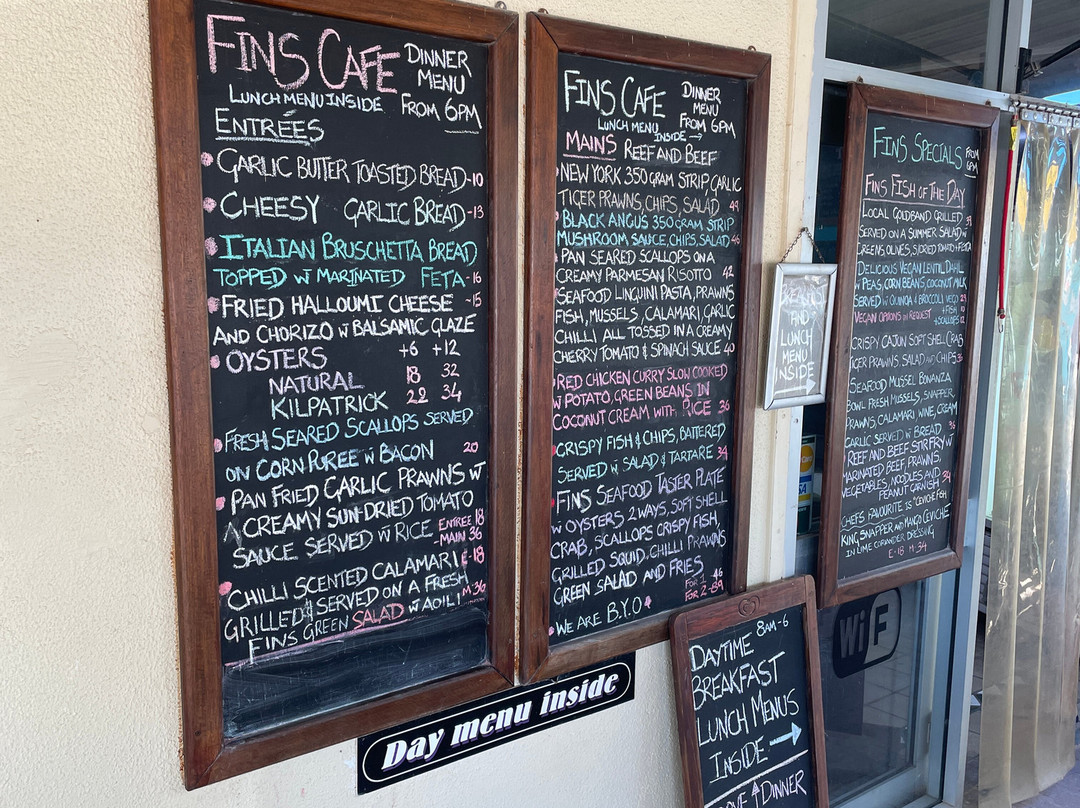 FINS CAFE DINNER
MENU
LUNCH MENU INSIDE FROM 6PM
ENTRÉES
GARLIC BUTTER TOASTED BREAD-10
CHEESY GARLIC BREAD-13
ITALIAN BRUSCHETTA BREAD
TOPPED W MARINATED FETA-16
FRIED HALLOUMI CHEESE -15
AND CHORIZO W BALSAMIC GLAZE
OYSTERS +6 +12
NATURAL 18 32
KILPATRICK 22 34
FRESH SEARED SCALLOPS SERVED
ON CORN PUREE W BACON 20
PAN FRIED GARLIC PRAWNS W
A CREAMY SUN-DRIED TOMATO
SAUCE SERVED W RICE ENTREE 18
-MAIN 36
CHILLI SCENTED CALAMARI E-18
GRILLED & SERVED ON A FRESH
FINS GREEN SALAD W AOILI M-36
FINS CAFE DINNER
MENU
LUNCH MENU INSIDE → FROM 6PM
MAINS REEF AND BEEF
NEW YORK 350 GRAM STRIP, GARLIC
TIGER PRAWNS, CHIPS, SALAD 49
BLACK ANGUS 350 GRAM STRIP
MUSHROOM SAUCE, CHIPS, SALAD 46
PAN SEARED SCALLOPS ON A
CREAMY PARMESAN RISOTTO 42
SEAFOOD LINGUINI PASTA, PRAWNS
FISH, MUSSELS, CALAMARI, GARLIC
CHILLI ALL TOSSED IN A CREAMY
CHERRY TOMATO & SPINACH SAUCE 40
RED CHICKEN CURRY SLOW COOKED
W POTATO, GREEN BEANS IN
COCONUT CREAM WITH RICE 36
CRISPY FISH & CHIPS, BATTERED
SERVED W SALAD & TARTARE 34
FINS SEAFOOD TASTER PLATE
W OYSTERS 2 WAYS, SOFT SHELL
CRAB, SCALLOPS CRISPY FISH,
GRILLED SQUID, CHILLI PRAWNS
GREEN SALAD AND FRIES FOR 1-46
FOR 2-89
WE ARE B.Y.O
BREAKFAST
AND
LUNCH
MENU
INSIDE
→
FINS SPECIALS FROM
6PM
FINS FISH OF THE DAY
LOCAL GOLDBAND GRILLED 39
SERVED ON A SUMMER SALAD W
GREENS, OLIVES, S/DRIED TOMATO + FETA
DELICIOUS VEGAN LENTIL DAHL
W PEAS, CORN BEANS, COCONUT MILK
SERVED W QUINOA & BROCCOLI VEGO
VEGAN OPTIONS ON REQUEST + FISH
+ SCALLOPS
CRISPY CAJUN SOFT SHELL CRAB
TIGER PRAWNS SALAD AND CHIPS
SEAFOOD MUSSEL BONANZA
BOWL FRESH MUSSELS, SNAPPER,
PRAWNS, CALAMARI WINE, CREAM
GARLIC SERVED W BREAD 36
REEF AND BEEF STIR FRY W
MARINATED BEEF, PRAWNS
VEGETABLES, NOODLES AND
PEANUT GARNISH 34
CHEFS FAVOURITE IS "CEVICHE FISH
KING SNAPPER AND MANGO CEVICHE
IN LIME CORIANDER DRESSING
E-18 M-34
DAYTIME 8AM-6
BREAKFAST
LUNCH MENUS
INSIDE →
DINNER
Day menu inside
WiFi